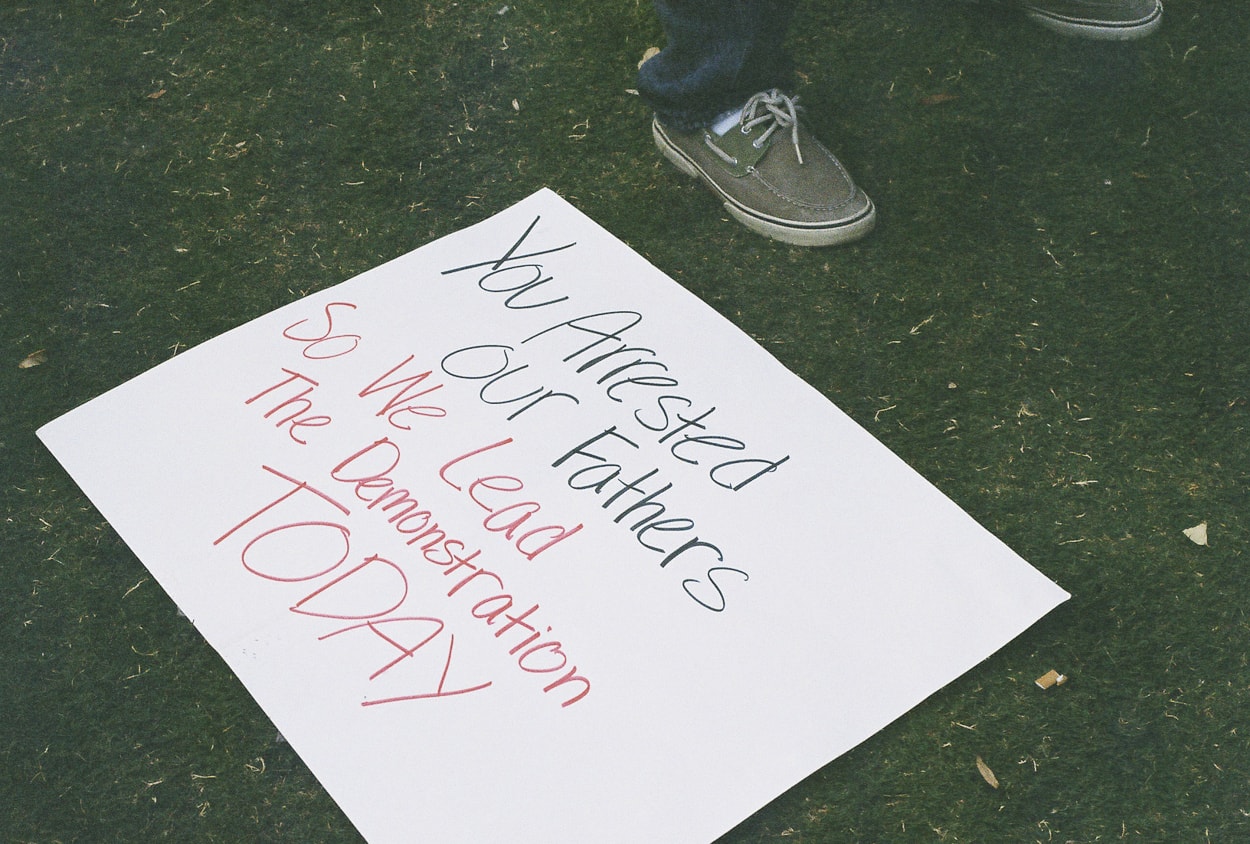 You Arrested
Our Fathers
So We Lead
The Demonstration
TODAY